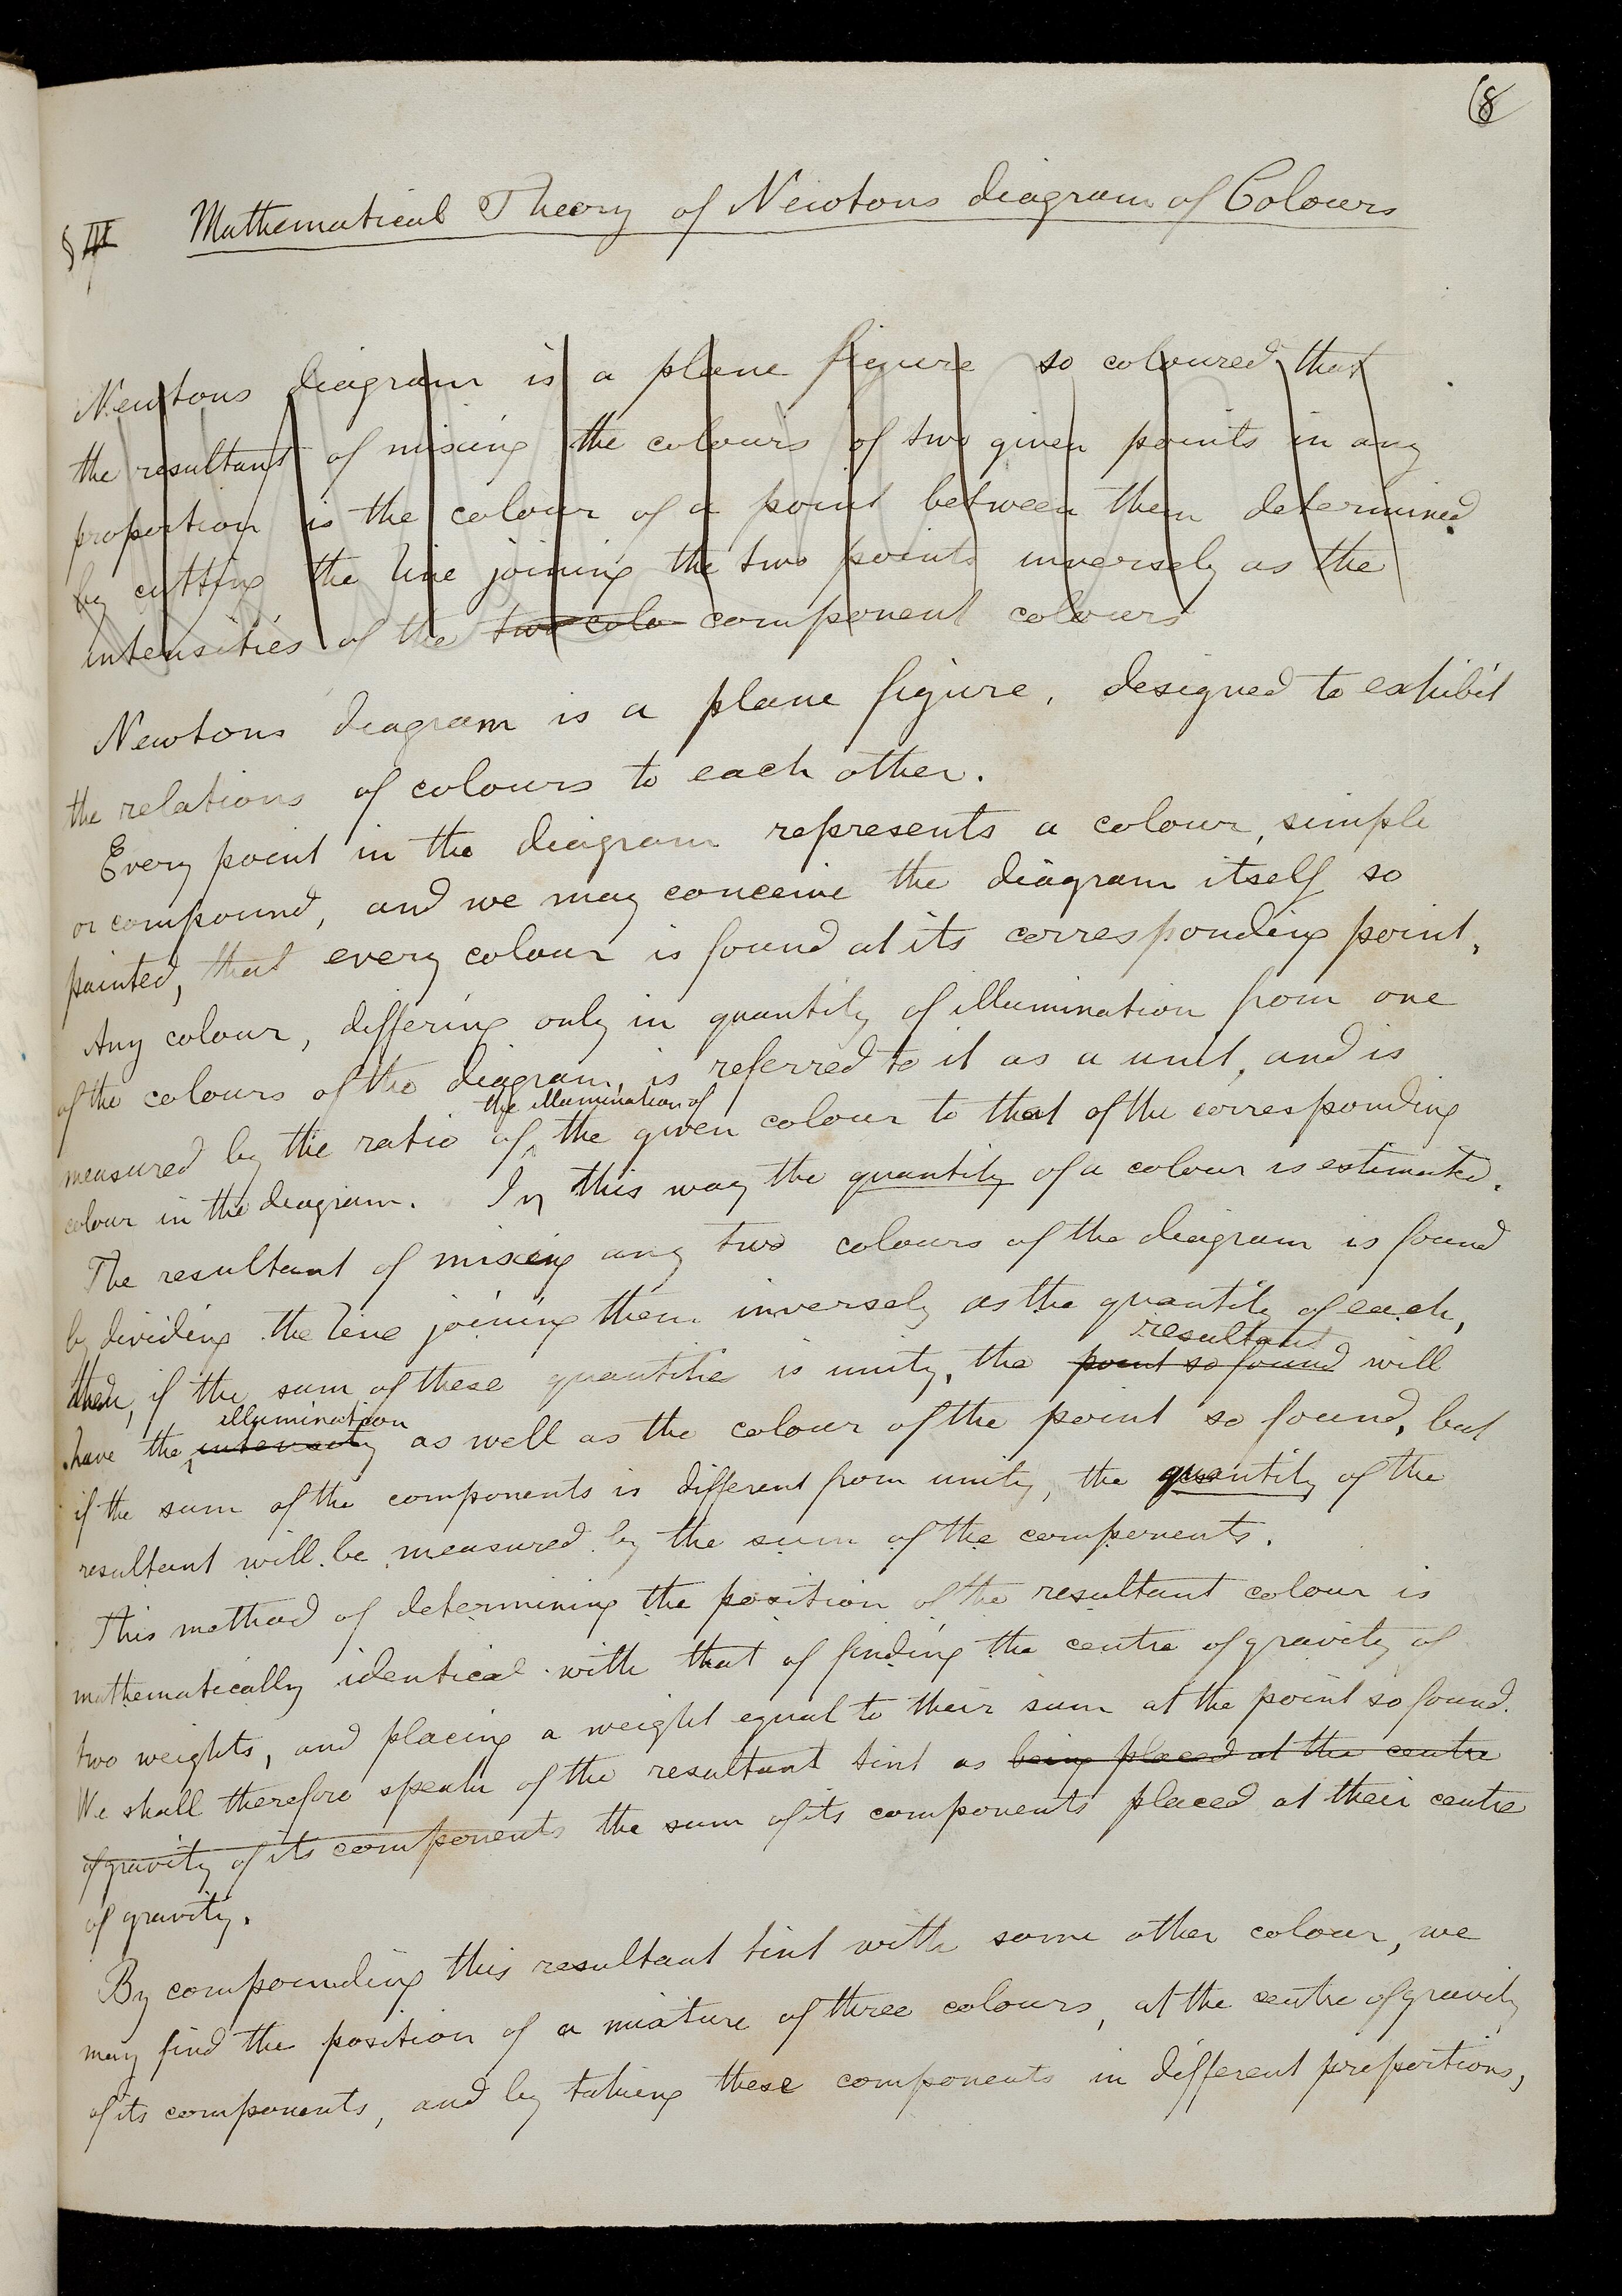 8
§ III Mathematical Theory of Newtons diagram of Colours
Newtons diagram is a plane figure so coloured that
the resultant of mixing the colours of two given points in any
proportion is the colour of a point between them determined
by cutting the line joining the two points inversely as the
intensities of the two colo component colours
Newtons diagram is a plane figure, designed to exhibit
the relations of colours to each other.
Every point in the diagram represents a colour, simple
or compound, and we may conceive the diagram itself so
painted, that every colour is found at its corresponding point.
Any colour, differing only in quantity of illumination from one
of the colours of the diagram, is referred to it as a unit, and is
the illumination of
measured by the ratio of the given colour to that of the corresponding
colour in the diagram. In this way the quantity of a colour is estimated.
The resultant of mixing any two colours of the diagram is found
by dividing the line joining them inversely as the quantity of each,
resultant
then, if the sum of these quantities is unity, the point so found will
illumination
have the intensity as well as the colour of the point so found, but
if the sum of the components is different from unity, the quantity of the
resultant will be measured by the sum of the components.
This method of determining the position of the resultant colour is
mathematically identical with that of finding the centre of gravity of
two weights, and placing a weight equal to their sum at the point so found.
We shall therefore speak of the resultant tint as being placed at the centre
of gravity of its components the sum of its components placed at their centre
of gravity.
By compounding this resultant tint with some other colour, we
may find the position of a mixture of three colours, at the centre of gravity
of its components, and by taking these components in different proportions,